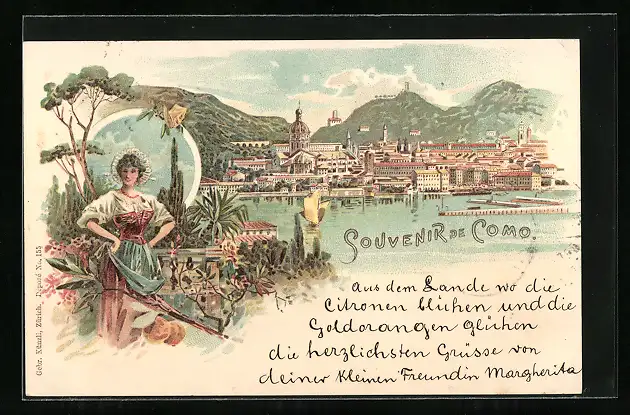 SOUVENIR DE COMO
Aus dem Lande wo die
Citronen blühen und die
Goldorangen glühen
die herzlichsten Grüsse von
deiner kleinen Freundin Margherita
Gebr. Künzli, Zürich. Déposé No. 155